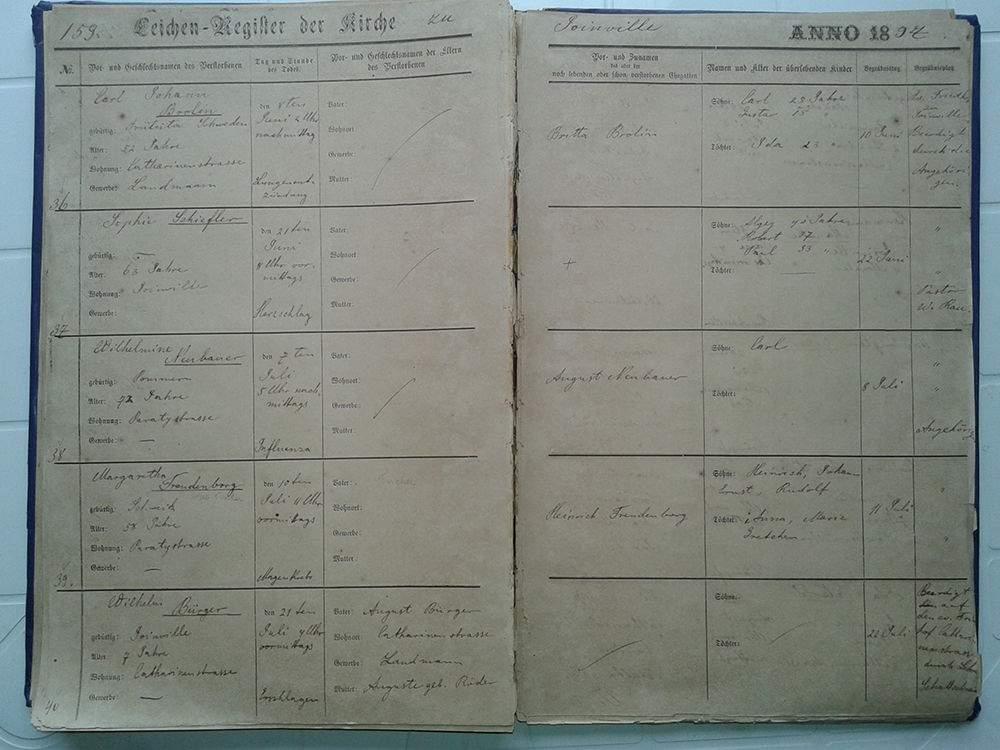 159. Leichen-Register der Kirche zu
Joinville ANNO 1894
№.
Vor- und Geschlechtsnamen des Verstorbenen
Tag und Stunde des Todes.
Vor- und Geschlechtsnamen der Eltern des Verstorbenen
Vor- und Zunamen
noch lebenden oder schon verstorbenen Ehegatten
Namen und Alter der überlebenden Kinder
Begräbnistag
Begräbnisplatz
36
Carl Johann
gebürtig: Schweden
Alter: 52 Jahre
Wohnung: Catharinenstrasse
Gewerbe: Landmann
den 8ten
Juni 2 Uhr
nachmittag
Lungenent-
zündung
Vater:
Wohnort
Gewerbe:
Mutter
Britta Brolin
Söhne: Carl 28 Jahre
Gustav 15 "
Töchter: Ida 23 "
10 Juni
Joinville
Beerdigt
durch die
Angehöri-
gen.
37
Sophie Schiefler
gebürtig: —
Alter: 63 Jahre
Wohnung: Joinville
Gewerbe:
den 21ten
Juni
Uhr vor-
mittags
Herzschlag
Vater:
Wohnort
Gewerbe:
Mutter:
+
Söhne: 40 Jahre
Robert 37 "
Paul 33 "
Töchter —
22 Juni
"
"
Pastor
W. Rau
38
Wilhelmine
Neubauer
gebürtig: Pommern
Alter: 72 Jahre
Wohnung: Paratystrasse
Gewerbe: —
den 7ten
Juli
5 Uhr nach-
mittags
Influenza
Vater:
Wohnort:
Gewerbe:
Mutter:
August Neubauer
Söhne: Carl
Töchter:
8 Juli
"
"
39.
Margaretha
Freudenberg
gebürtig: Schweiz
Alter: 58 Jahre
Wohnung: Paratystrasse
Gewerbe: —
den 10ten
Juli 4 Uhr
vormittags
Magenkrebs
Vater:
Wohnort:
Gewerbe:
Mutter:
Heinrich Freudenberg
Söhne: Heinrich, Johann
Ernst, Rudolf
Töchter: Anna, Marie
Gretchen
11 Juli
"
"
40
Wilhelm
Bürger
gebürtig: Joinville
Alter: 7 Jahre
Wohnung: Catharinenstrasse
Gewerbe: —
den 21ten
Juli 9 Uhr
vormittags
Erschlagen
Vater: August Bürger
Wohnort: Catharinenstrasse
Gewerbe: Landmann
Mutter: Auguste geb. Röder
Söhne:
Töchter:
22 Juli
Beerdigt
auf